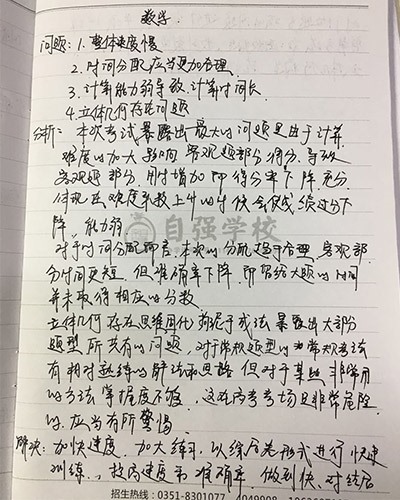 数学.
问题: 1. 整体速度慢
2. 时间分配应当更加合理
3. 计算能力弱导致计算时间长
4. 立体几何存在问题
分析: 本次考试暴露出最大的问题是由于计算
难度的加大影响客观题部分得分,导致
客观题部分用时增加 即得分率下降,充分
体现在难度系数上升的时候会成绩下
降,能力弱
对于时间分配 本次的分配趋于合理,客观部
分时间更短 但准确率下降,即留给大题的时间
并未取得相应的分数
立体几何存在思维固化 拘泥于成法 暴露出大部分
题型所共有的问题,对于常规题型的 常规考法
有相对熟练的解法和思路 但对于某些非常用
的方法掌握度不够,这在高考考场是非常危险
的,应当有所警惕
解决: 加快速度,加大练习,以综合卷形式进行快速
训练,提高速度和准确率,做到快、对结合
自强学校
招生热线: 0351-8301077